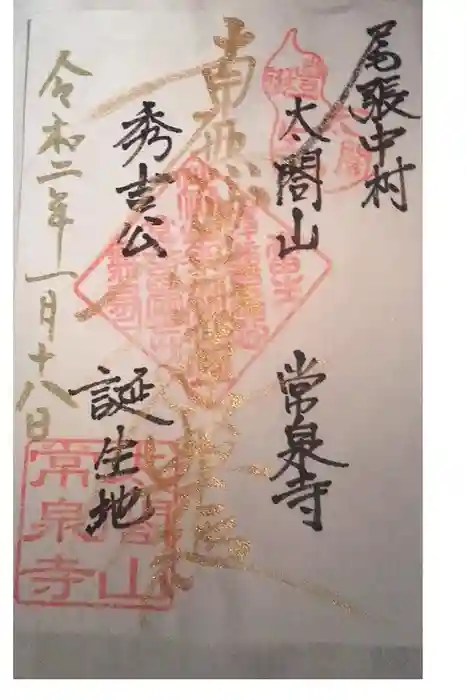 尾張中村
太閤山 常泉寺
南無妙法蓮華経
秀吉公 誕生地
令和二年一月十八日
太閤山
常泉寺